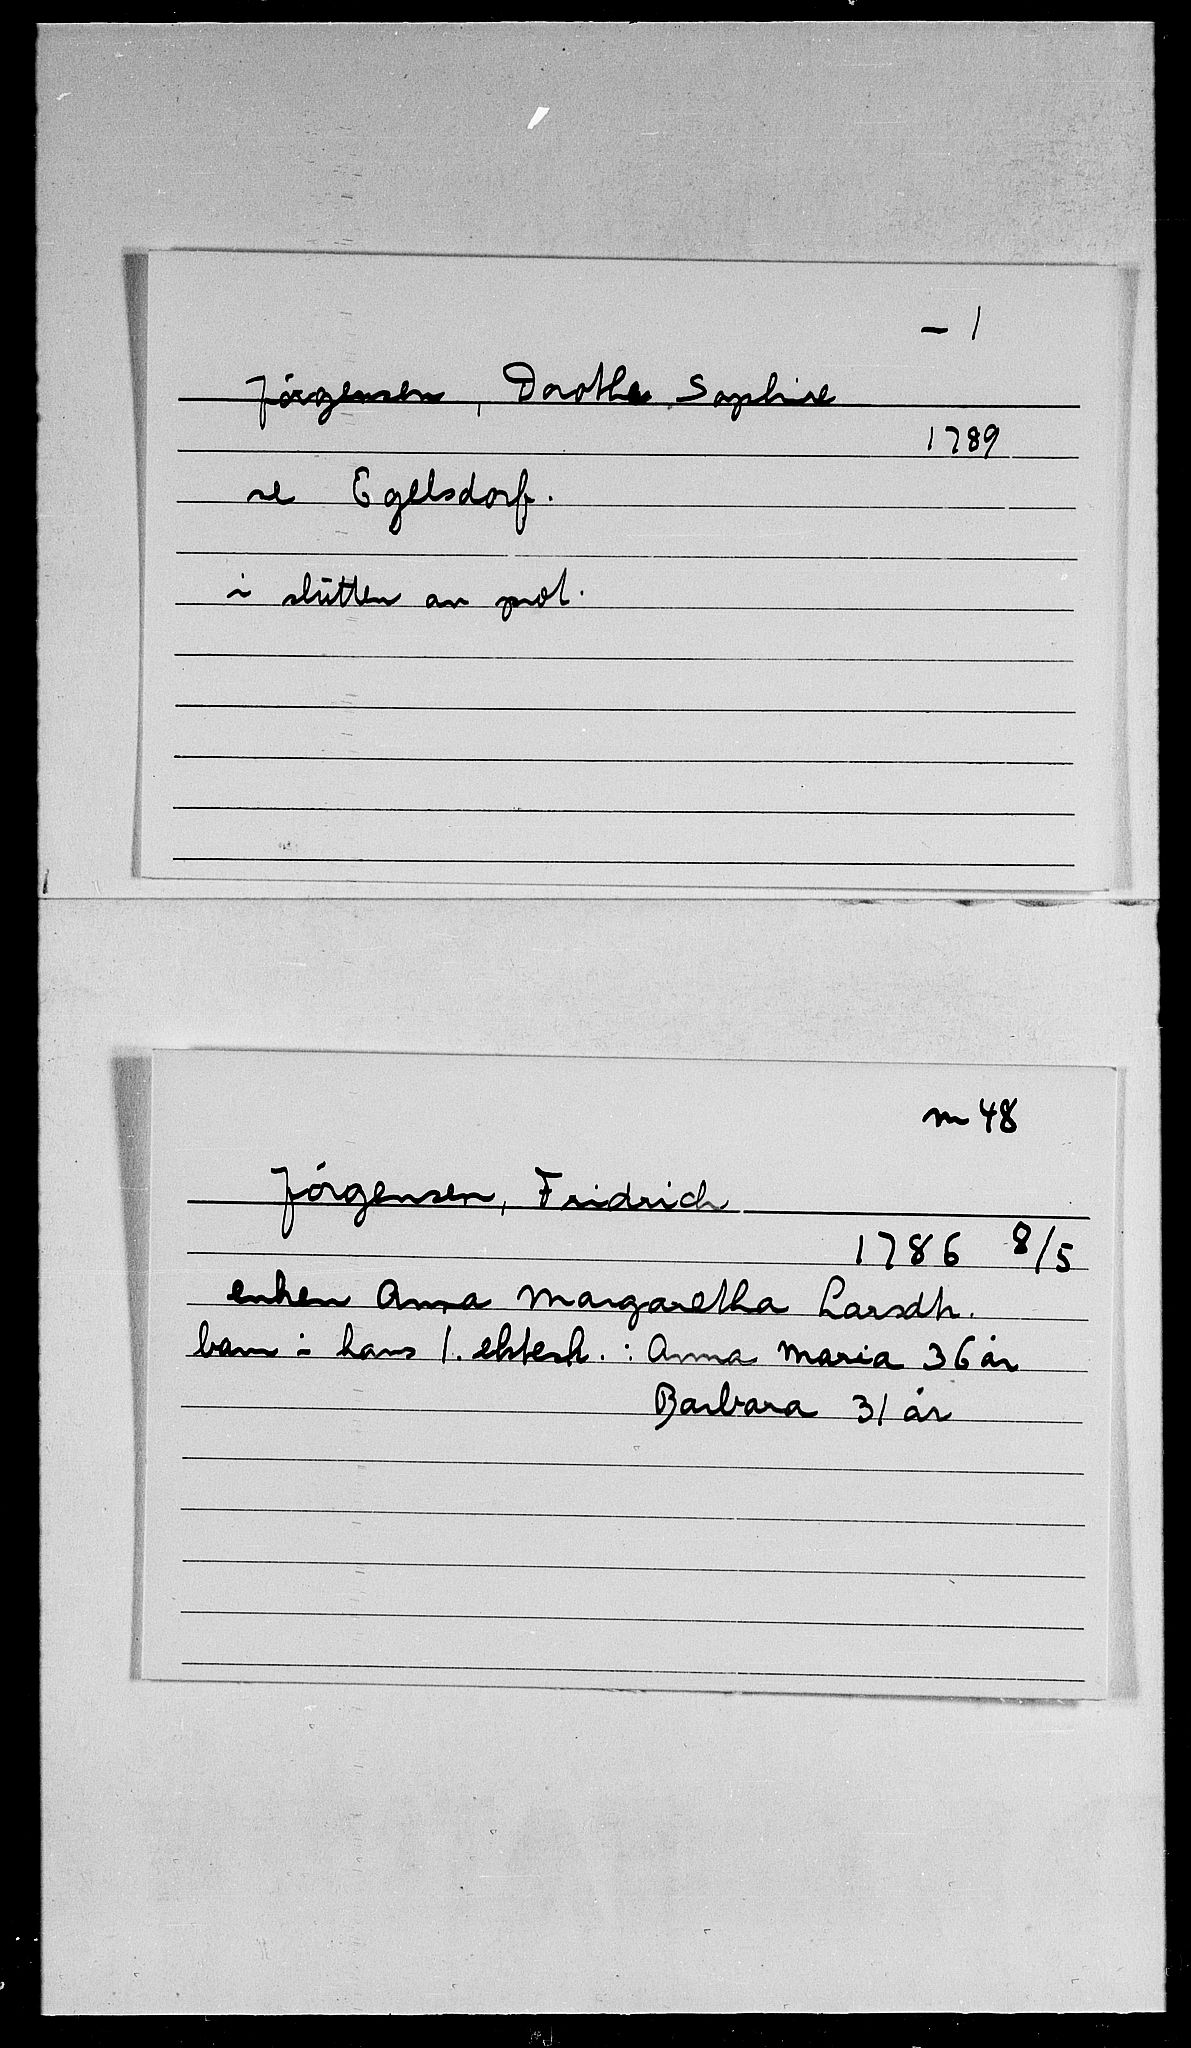 - 1
Jörgensen, Dorothe Sophie
1789
se Egelsdorf.
i slutten av prot.
m 48
Jörgensen, Fridrich
1786 8/5
enken Anna Margaretha Larsdtr.
barn i hans 1. ektesk. : Anna Maria 36 år
Barbara 31 år